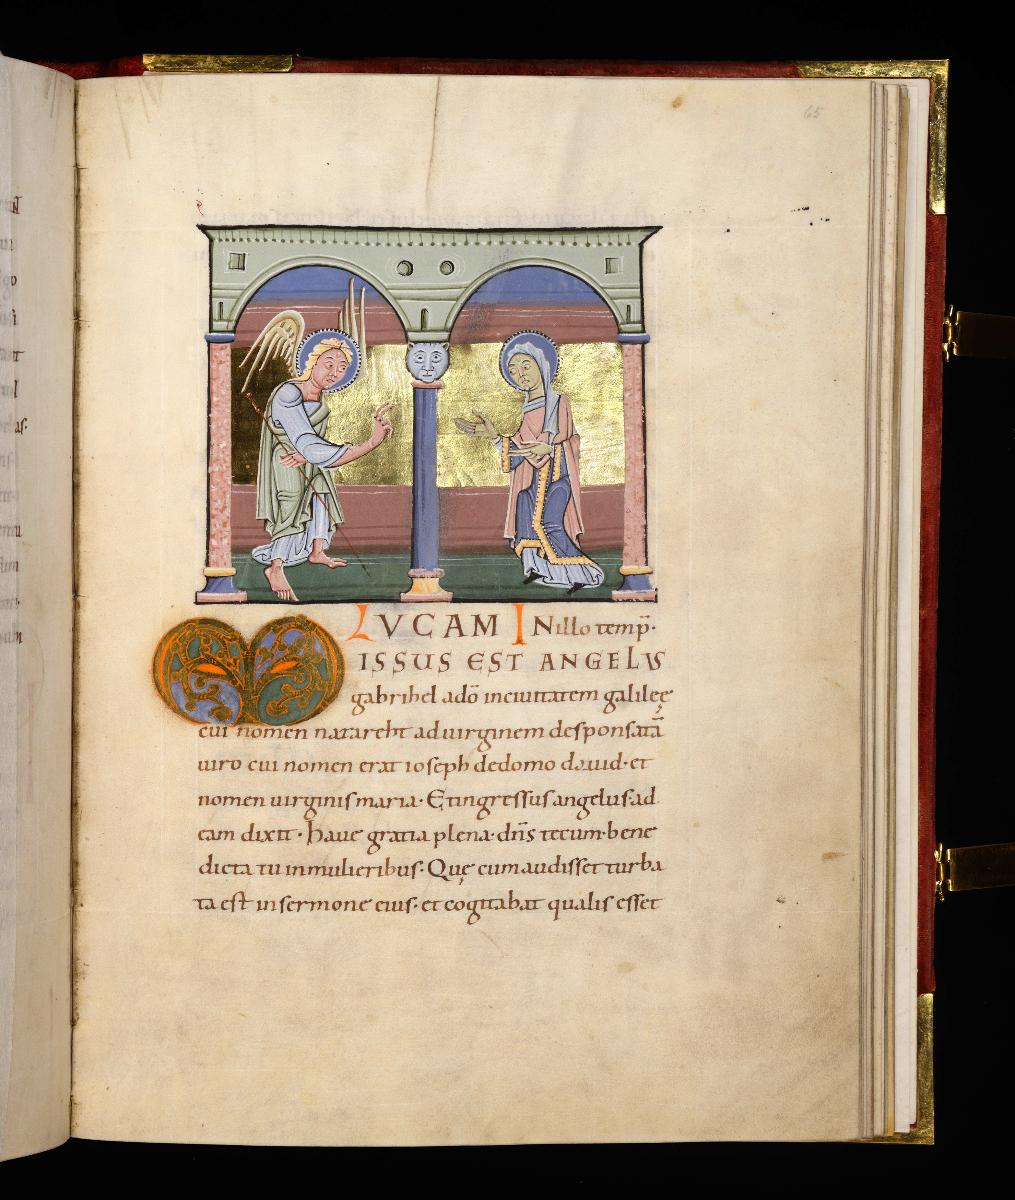 65
LUCAM IN illo temp̄·
MISSUS EST ANGELUS
gabrihel adō inciuitatem galileę
cui nomen nazareht aduirginem desponsatā
uiro cui nomen erat ioseph dedomo dauid· et
nomen uirginis maria· Etingressus angelus ad
eam dixit· haue gratia plena· dn̄s tecum· bene
dicta tu inmulieribus· Quę cum audisset turba
ta est insermone eius· et cogitabat qualis esset